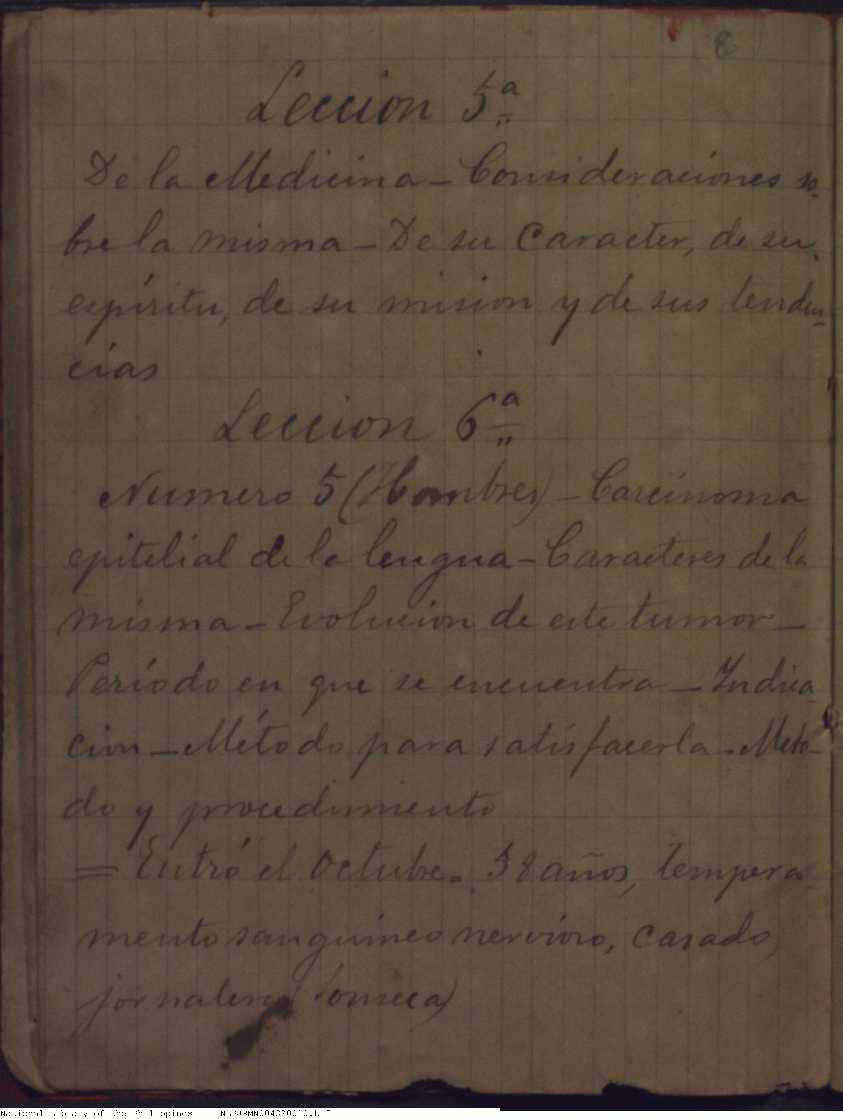 8
Leccion 5ª
De la Medicina - Consideraciones so-
bre la misma - De su caracter, de su
espíritu, de su mision y de sus tenden-
cias
Leccion 6ª
Numero 5 (Hombres) - Carcinoma
epitelial de la lengua - Caracteres de la
misma - Evolucion de este tumor -
Período en que se encuentra - Indica-
cion - Método para satisfacerla - Meto-
do y procedimiento
= Entró el Octubre. 58 años, tempera
mento sanguineo nervioso, casado,
jornalero (Fonseca)
National Library of the Philippines